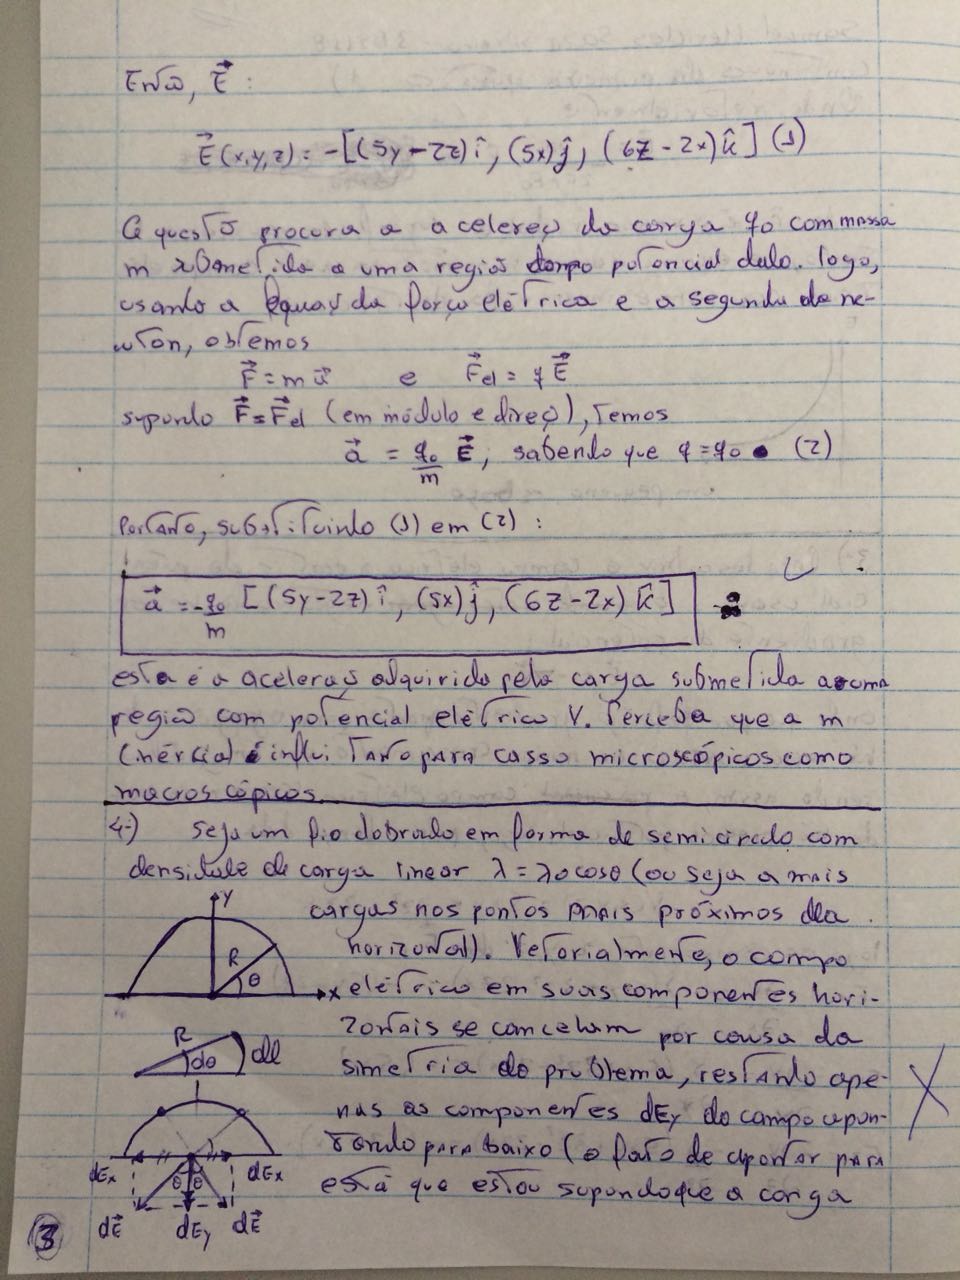 Então, E⃗ :
E⃗(x,y,z) = -[(5y-2z)î, (5x)ĵ, (6z-2x)k̂] (1)
A questão procura a aceleração da carga q0 com massa
m submetida a uma região potencial dado. logo,
usando a equação da força elétrica e a segunda de ne-
wton, obtemos
F⃗ = m a⃗ e F⃗el = q E⃗
supondo F⃗ = F⃗el (em módulo e direção), temos
a⃗ = q0/m E⃗, sabendo que q = q0 (2)
Portanto, substituindo (1) em (2) :
a⃗ = -q0/m [(5y-2z)î, (5x)ĵ, (6z-2x)k̂]
esta é a aceleração adquirida pela carga submetida a uma
região com potencial elétrico V. Perceba que a m
(inércia) influi tanto para casso microscópicos como
macroscópicos.
4-) Seja um fio dobrado em forma de semicírculo com
densidade de carga linear λ = λ0 cosθ (ou seja a mais
cargas nos pontos mais próximos da
horizontal). Vetorialmente, o campo
elétrico em suas componentes hori-
zontais se cancelam por causa da
simetria do problema, restando ape-
nas as componentes dEy do campo apon-
tando para baixo (o fato de apontar para
está que estou supondo que a carga
y
R
θ
x
R
dθ
dl
dEx
θ θ
dEx
dE⃗
dEy
dE⃗
3